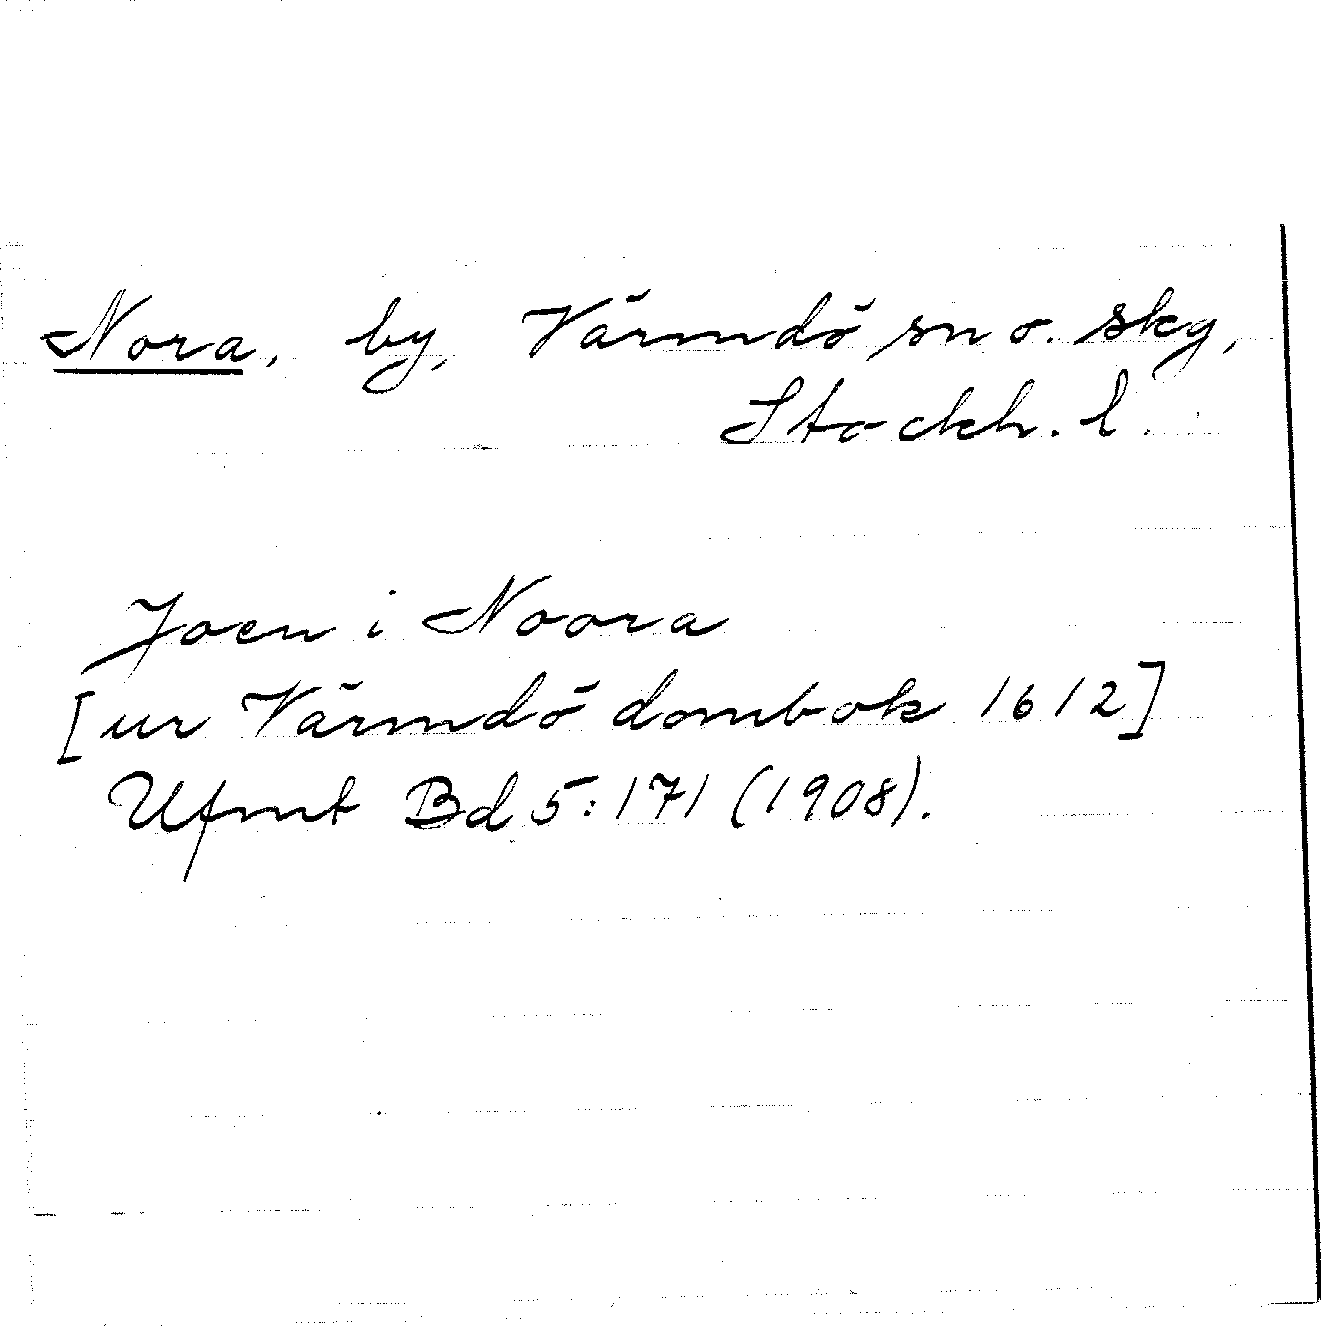 Nora, by, Värmdö sn o. skg,
Stockh. l.
Joen i Noora
[ur Värmdö dombok 1612]
Ufmt Bd 5:171 (1908).